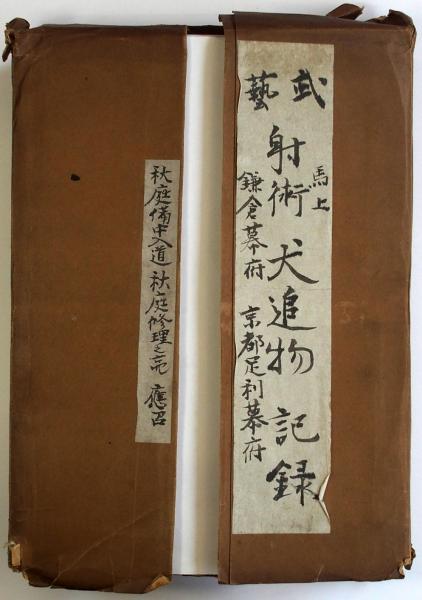 武藝
馬上
射術 犬追物 記録
鎌倉幕府 京都足利幕府
秋庭備中入道 秋庭修理之亮 應召